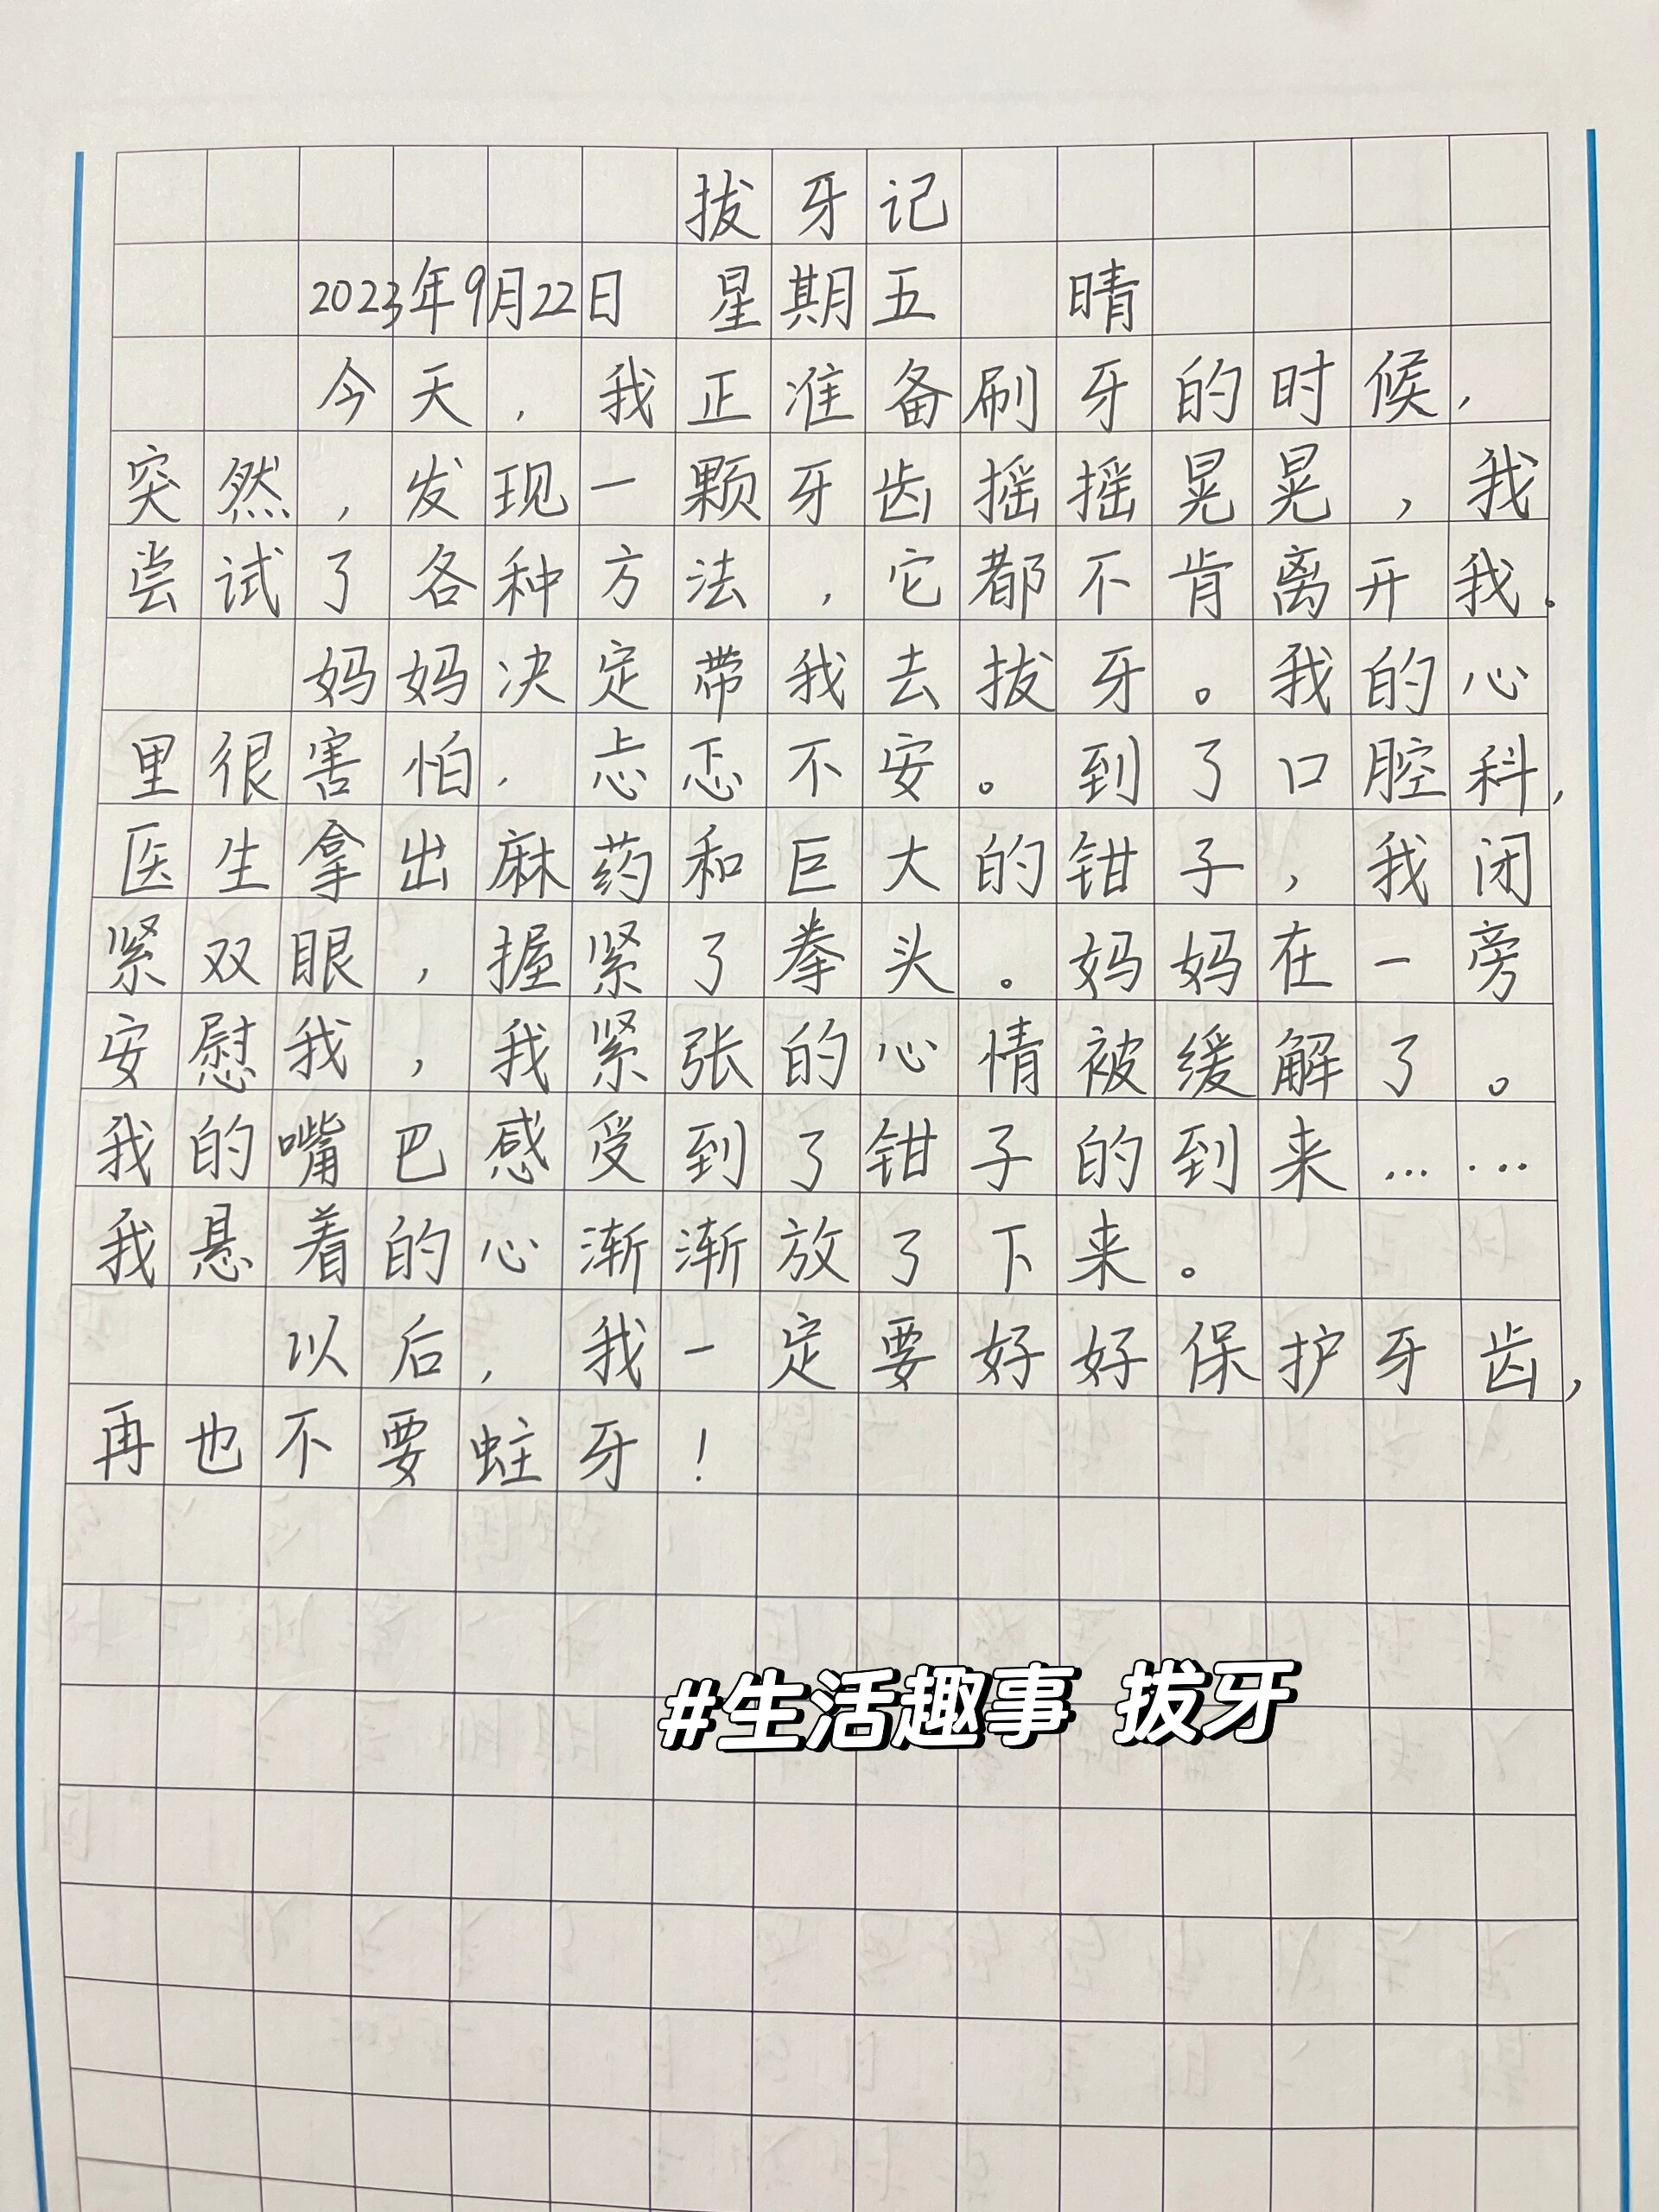 拔牙记
2023年9月22日 星期五 晴
今天，我正准备刷牙的时候，
突然，发现一颗牙齿摇摇晃晃，我
尝试了各种方法，它都不肯离开我。
妈妈决定带我去拔牙。我的心
里很害怕，忐忑不安。到了口腔科，
医生拿出麻药和巨大的钳子，我闭
紧双眼，握紧了拳头。妈妈在一旁
安慰我，我紧张的心情被缓解了。
我的嘴巴感受到了钳子的到来……
我悬着的心渐渐放了下来。
以后，我一定要好好保护牙齿，
再也不要蛀牙！
#生活趣事 拔牙